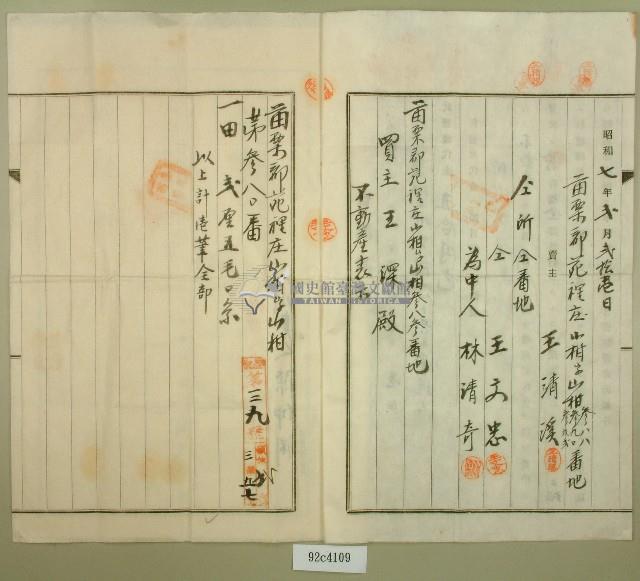 昭和七年弐月弐拾壱日
苗栗郡苑裡庄山柑字山柑 番地
賣主
王清溪
仝所仝番地
仝 王文忠
為中人 林清奇
苗栗郡苑裡庄山柑字山柑参八参番地
買主 王 深 殿
不動産表示
苗栗郡苑裡庄山柑字山柑
第参八〇番
一田 弐厘五毛〇糸
以上計壱筆全部
三九
國史館臺灣文獻館
TAIWAN HISTORICA
92c4109